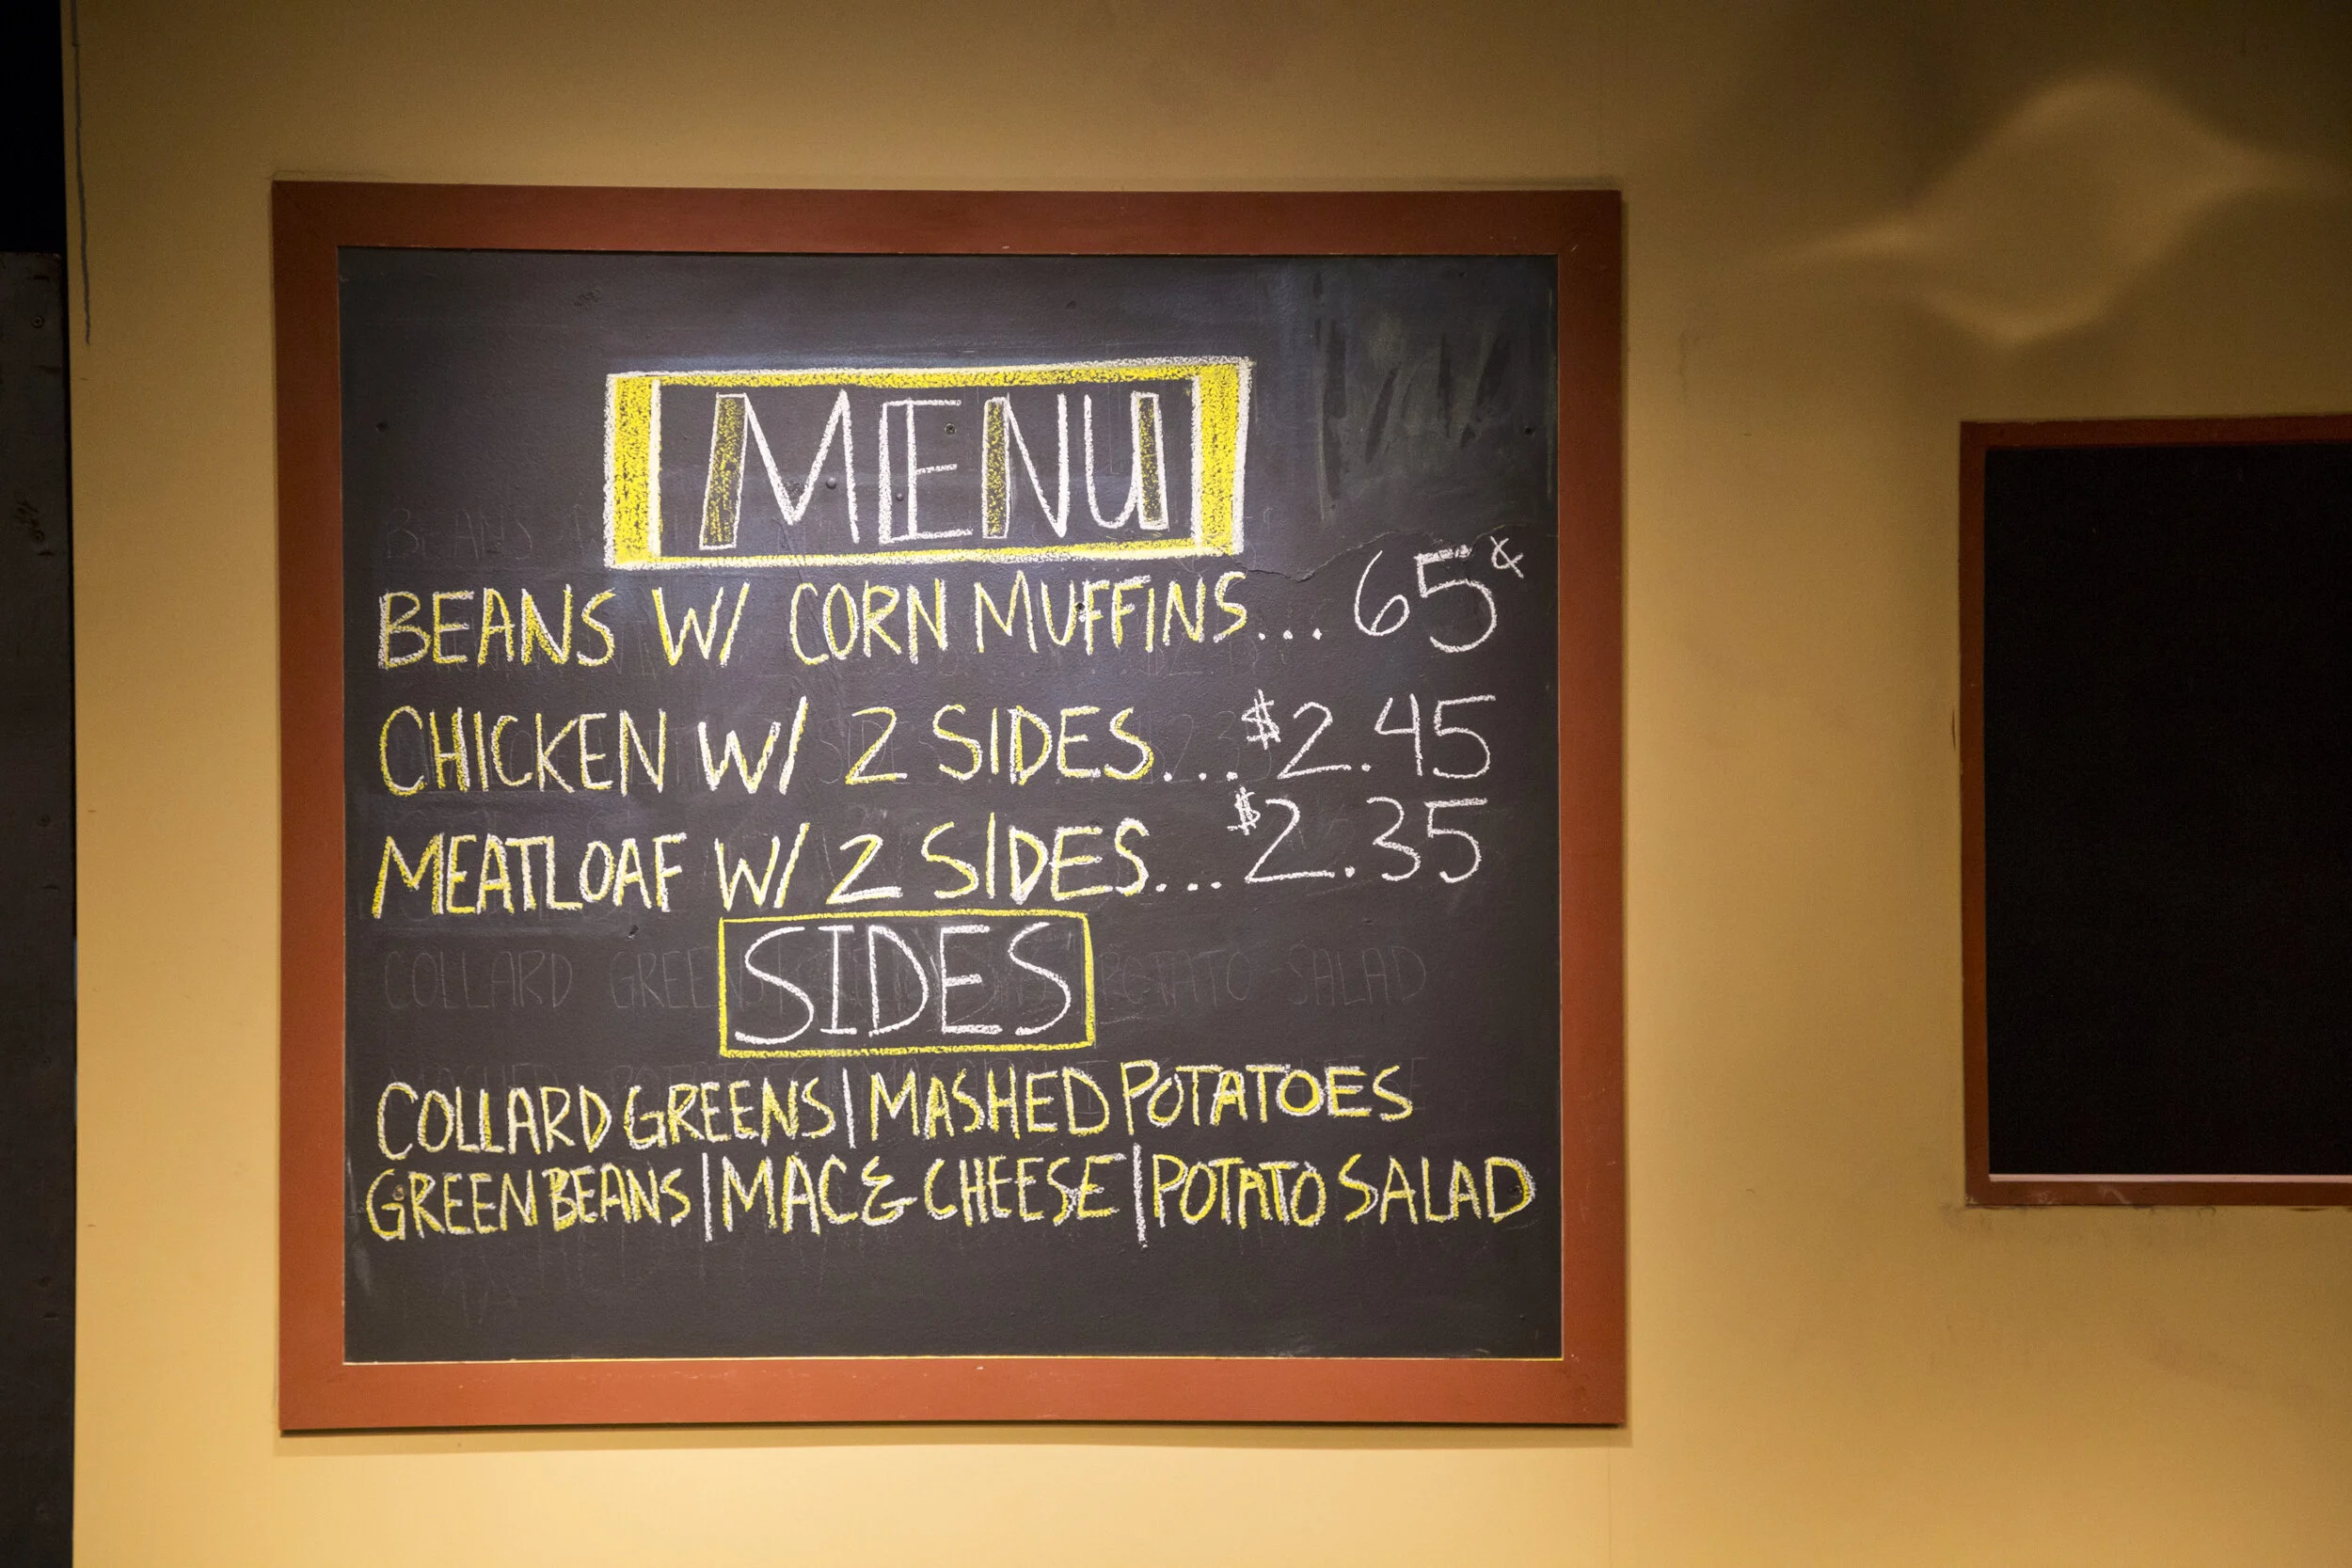 MENU
BEANS W/ CORN MUFFINS... 65¢
CHICKEN W/ 2 SIDES... $2.45
MEATLOAF W/ 2 SIDES... $2.35
SIDES
COLLARD GREENS | MASHED POTATOES
GREEN BEANS | MAC & CHEESE | POTATO SALAD